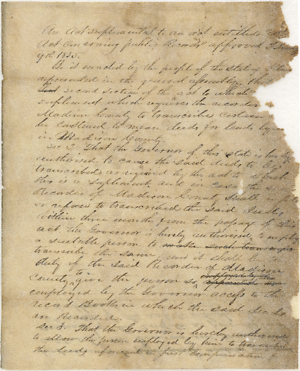 An act supplemental to an act entitled An
Act concerning public Records approved
9th 1835.
Be it enacted by the people of the State of
represented in the general assembly That
second section of the act to which
supplement which requires the recorder
Madison County to transcribe certain
be construed to mean deeds for lands
in Madison County
Sec 2. That the Governor of this State is
authorised to cause the said deeds to be
transcribed as required by the act to which
this is a supplement, and in case the
Recorder of Madison County shall
or refuse to transcribe the said deeds,
within three months from the passage of this
act the Governor is hereby authorised to employ
a suitable person to
transcribe the same and it shall be the
duty of the said Recorder of Madison
County to give the person so
employed by the Governor access to the
record Books in which the said deeds
are Recorded.
Sec 3. That the Governor is hereby authorised
to allow the person employed by him to transcribe
the deeds aforesaid a just compensation